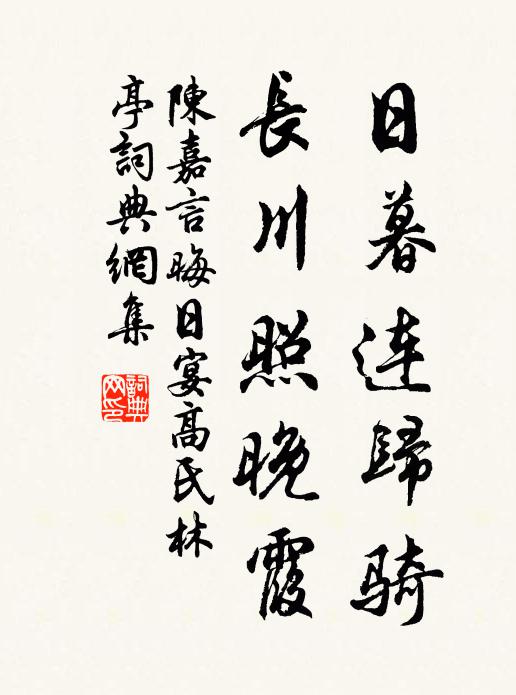 日暮連歸骑
長川照晚霞
陳嘉言晦日宴高氏林
亭詞典網集
詞典
网印